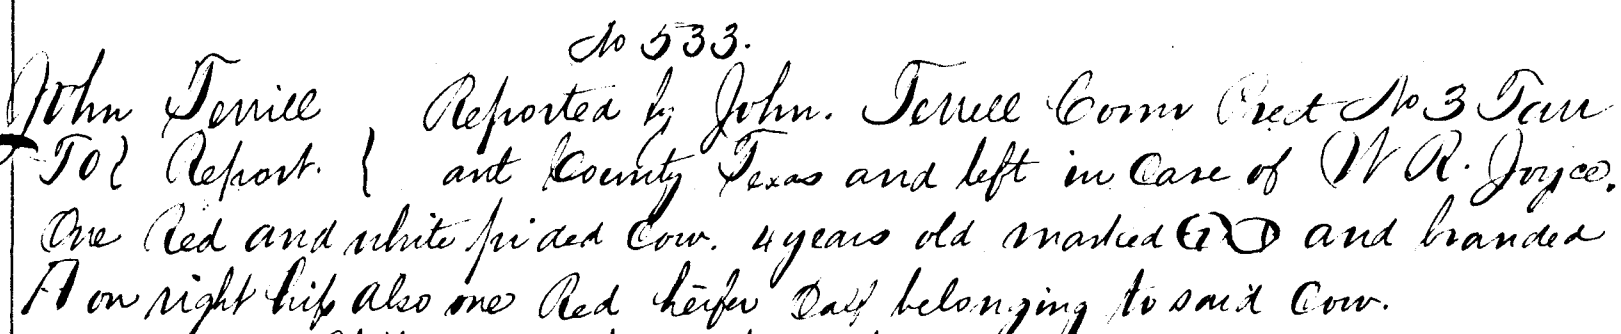 No 533.
John Terrill Reported by John. Terrell Comr Prect No 3 Tarr
TO} Report. { ant County Texas and left in Care of W R. Joyce.
One Red and white pided Cow. 4 years old marked and branded
on right hip also one Red heifer Calf belonging to said Cow.